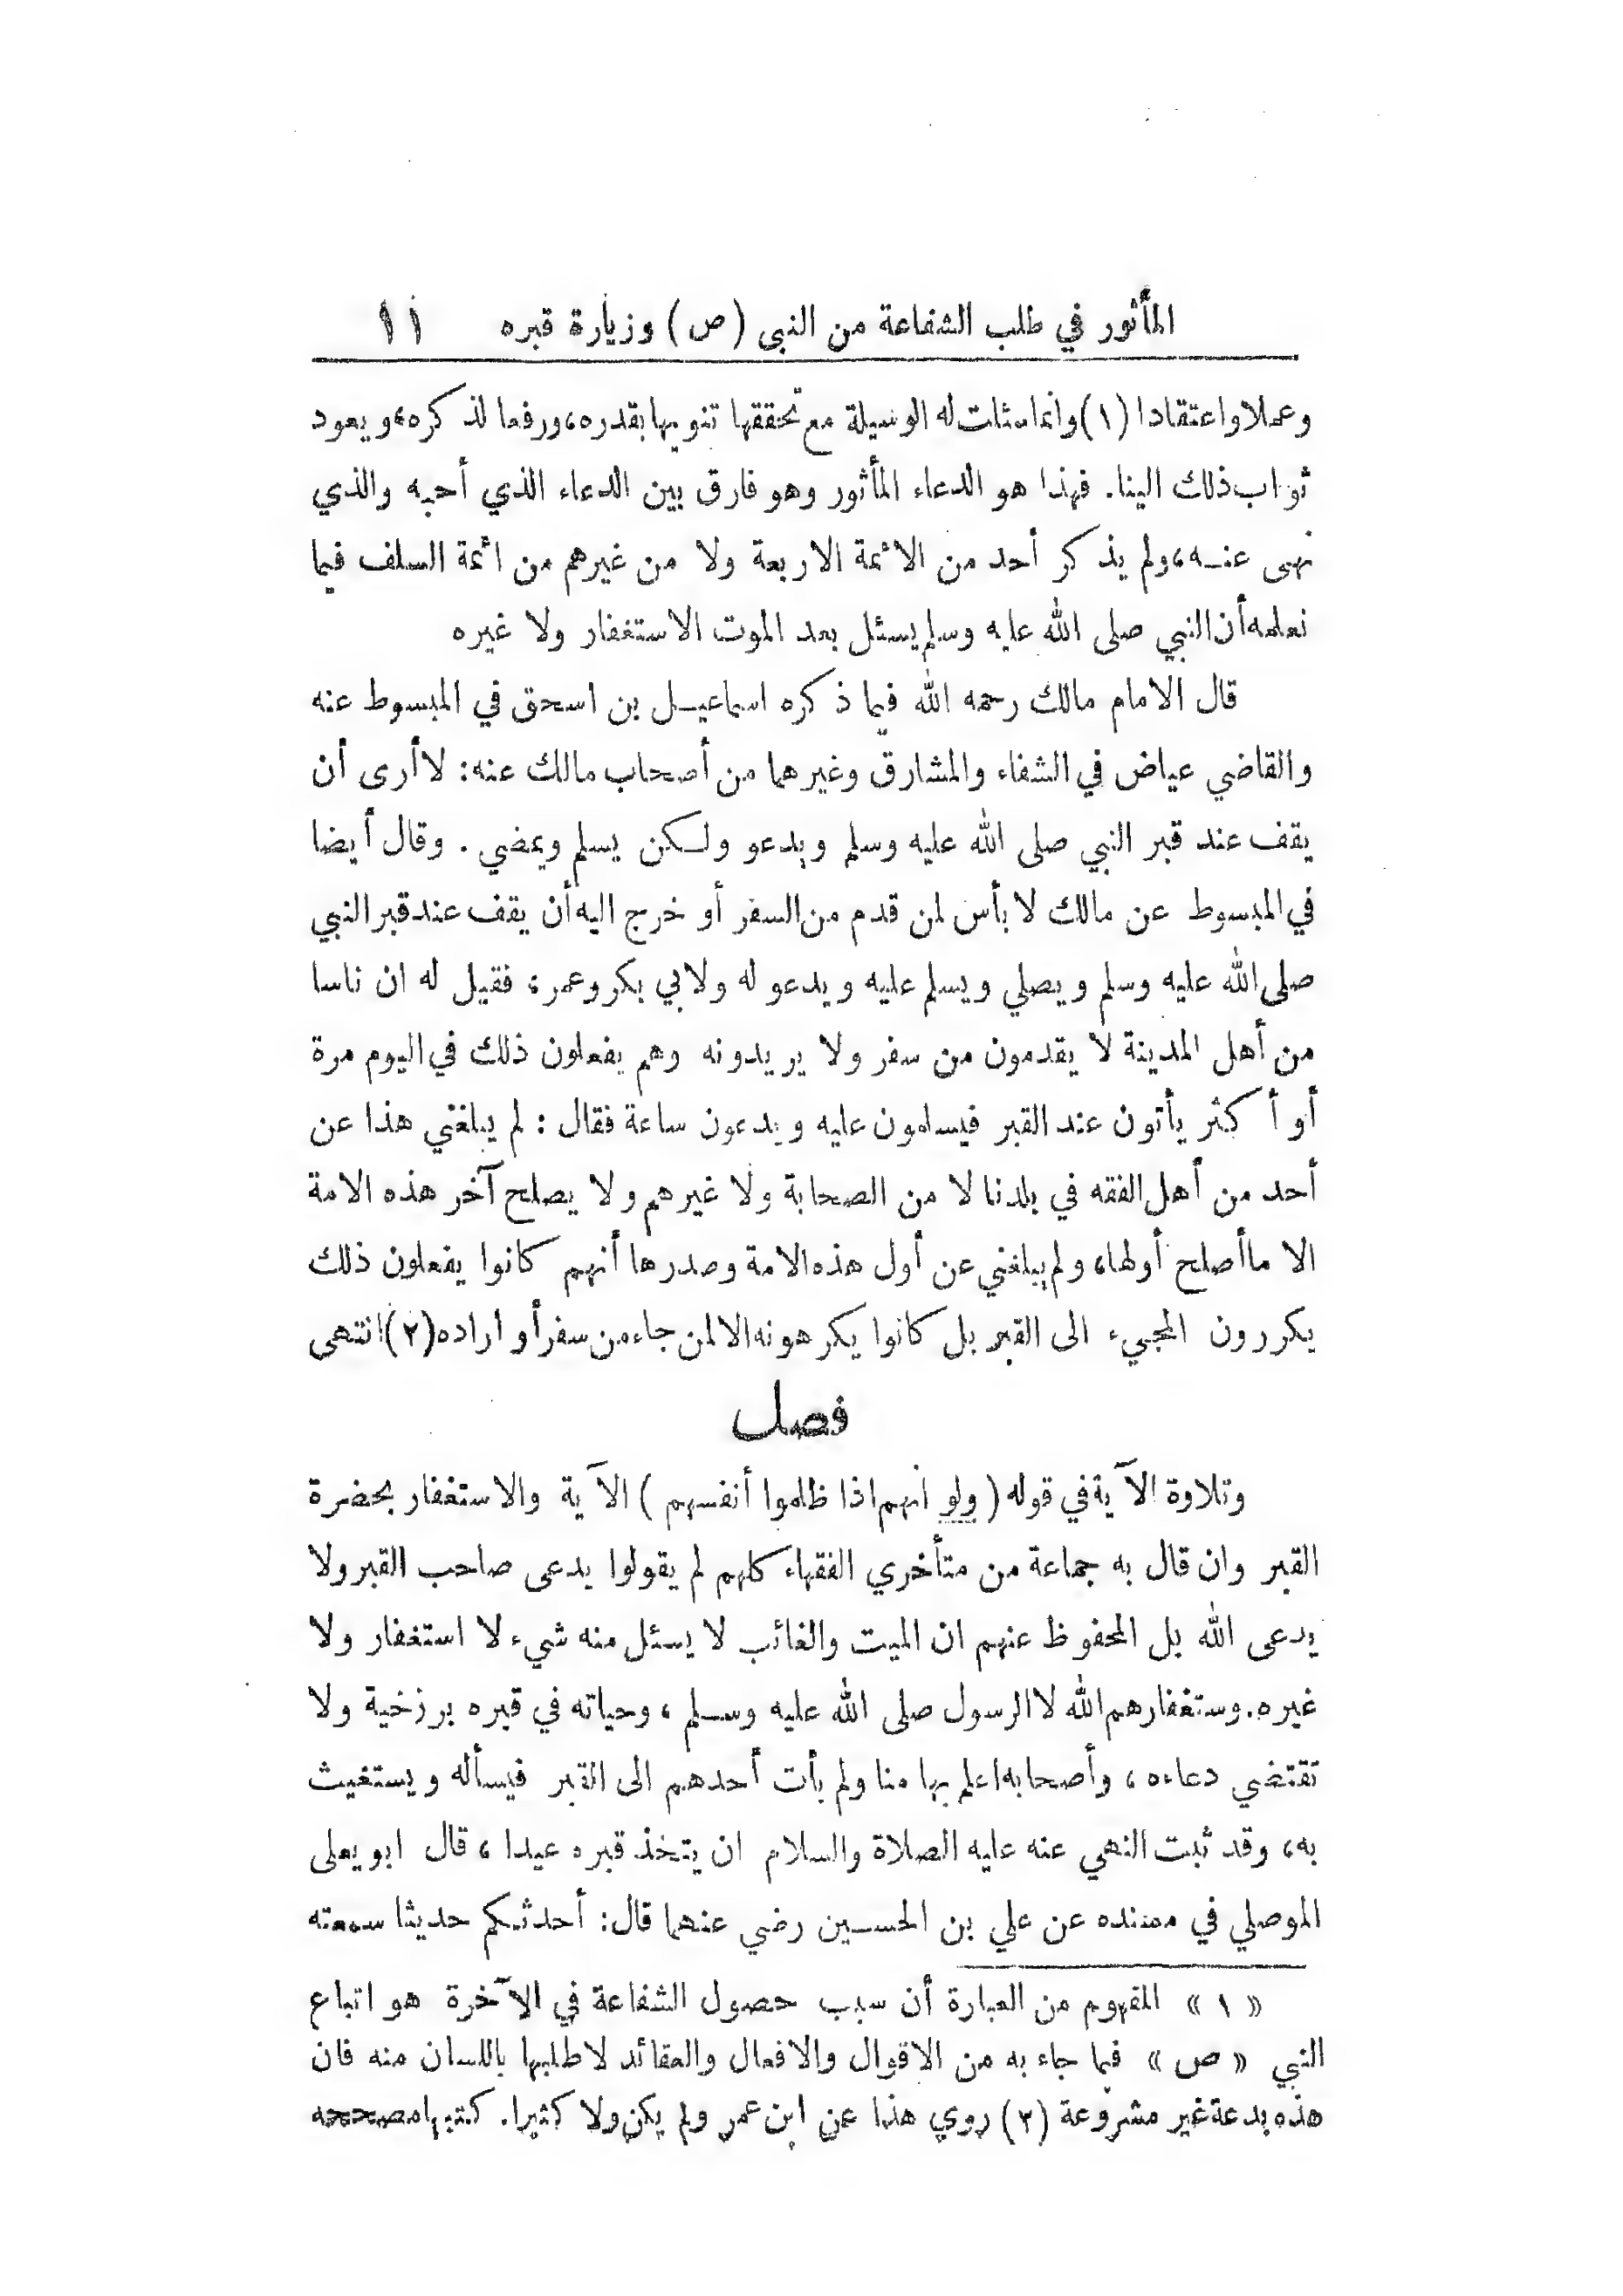 المأثور في طلب الشفاعة من النبى (ص) وزيارة قبره ١١
وعملا واعتقادا (١) وانما سئلت له الوسيلة مع تحققها تنويها بقدره، ورفعا لذكره، ويعود
ثواب ذلك الينا. فهذا هو الدعاء المأثور وهو فارق بين الدعاء الذي أحبه والذي
نهى عنه، ولم يذكر أحد من الائمة الاربعة ولا من غيرهم من ائمة السلف فيما
نعلمه أن النبي صلى الله عليه وسلم يسئل بعد الموت الاستغفار ولا غيره
قال الامام مالك رحمه الله فيما ذكره اسماعيل بن اسحق في المبسوط عنه
والقاضي عياض في الشفاء والمشارق وغيرهما من أصحاب مالك عنه: لا أرى أن
يقف عند قبر النبي صلى الله عليه وسلم ويدعو ولكن يسلم ويمضي. وقال أيضا
في المبسوط عن مالك لا بأس لمن قدم من السفر أو خرج اليه أن يقف عند قبر النبي
صلى الله عليه وسلم ويصلي ويسلم عليه ويدعو له ولابي بكر وعمر، فقيل له ان ناسا
من أهل المدينة لا يقدمون من سفر ولا يريدونه وهم يفعلون ذلك في اليوم مرة
أو أكثر يأتون عند القبر فيسلمون عليه ويدعون ساعة فقال: لم يبلغني هذا عن
أحد من أهل الفقه في بلدنا لا من الصحابة ولا غيرهم ولا يصلح آخر هذه الامة
الا ما أصلح أولها، ولم يبلغني عن أول هذه الامة وصدرها أنهم كانوا يفعلون ذلك
يكررون المجيء الى القبر بل كانوا يكرهونه الا لمن جاء من سفر أو اراده (٢) انتهى
فصل
وتلاوة الآية في قوله (ولو انهم اذا ظلموا أنفسهم) الآية والاستغفار بحضرة
القبر وان قال به جماعة من متأخري الفقهاء كلهم لم يقولوا يدعى صاحب القبر ولا
يدعى الله بل المحفوظ عنهم ان الميت والغائب لا يسئل منه شيء لا استغفار ولا
غيره. وستغفارهم الله لا الرسول صلى الله عليه وسلم، وحياته في قبره برزخية ولا
تقتضي دعاءه، وأصحابه اعلم بها منا ولم يأت أحدهم الى القبر فيسأله ويستغيث
به، وقد ثبت النهي عنه عليه الصلاة والسلام ان يتخذ قبره عيدا، قال ابو يعلى
الموصلي في مسنده عن علي بن الحسين رضي عنهما قال: أحدثكم حديثا سمعته
«١» المفهوم من العبارة أن سبب حصول الشفاعة في الآخرة هو اتباع
النبي «ص» فيما جاء به من الاقوال والافعال والعقائد لا طلبها باللسان منه فان
هذه بدعة غير مشروعة (٢) روي هذا عن ابن عمر ولم يكن ولا كثيرا. كتبها مصححه